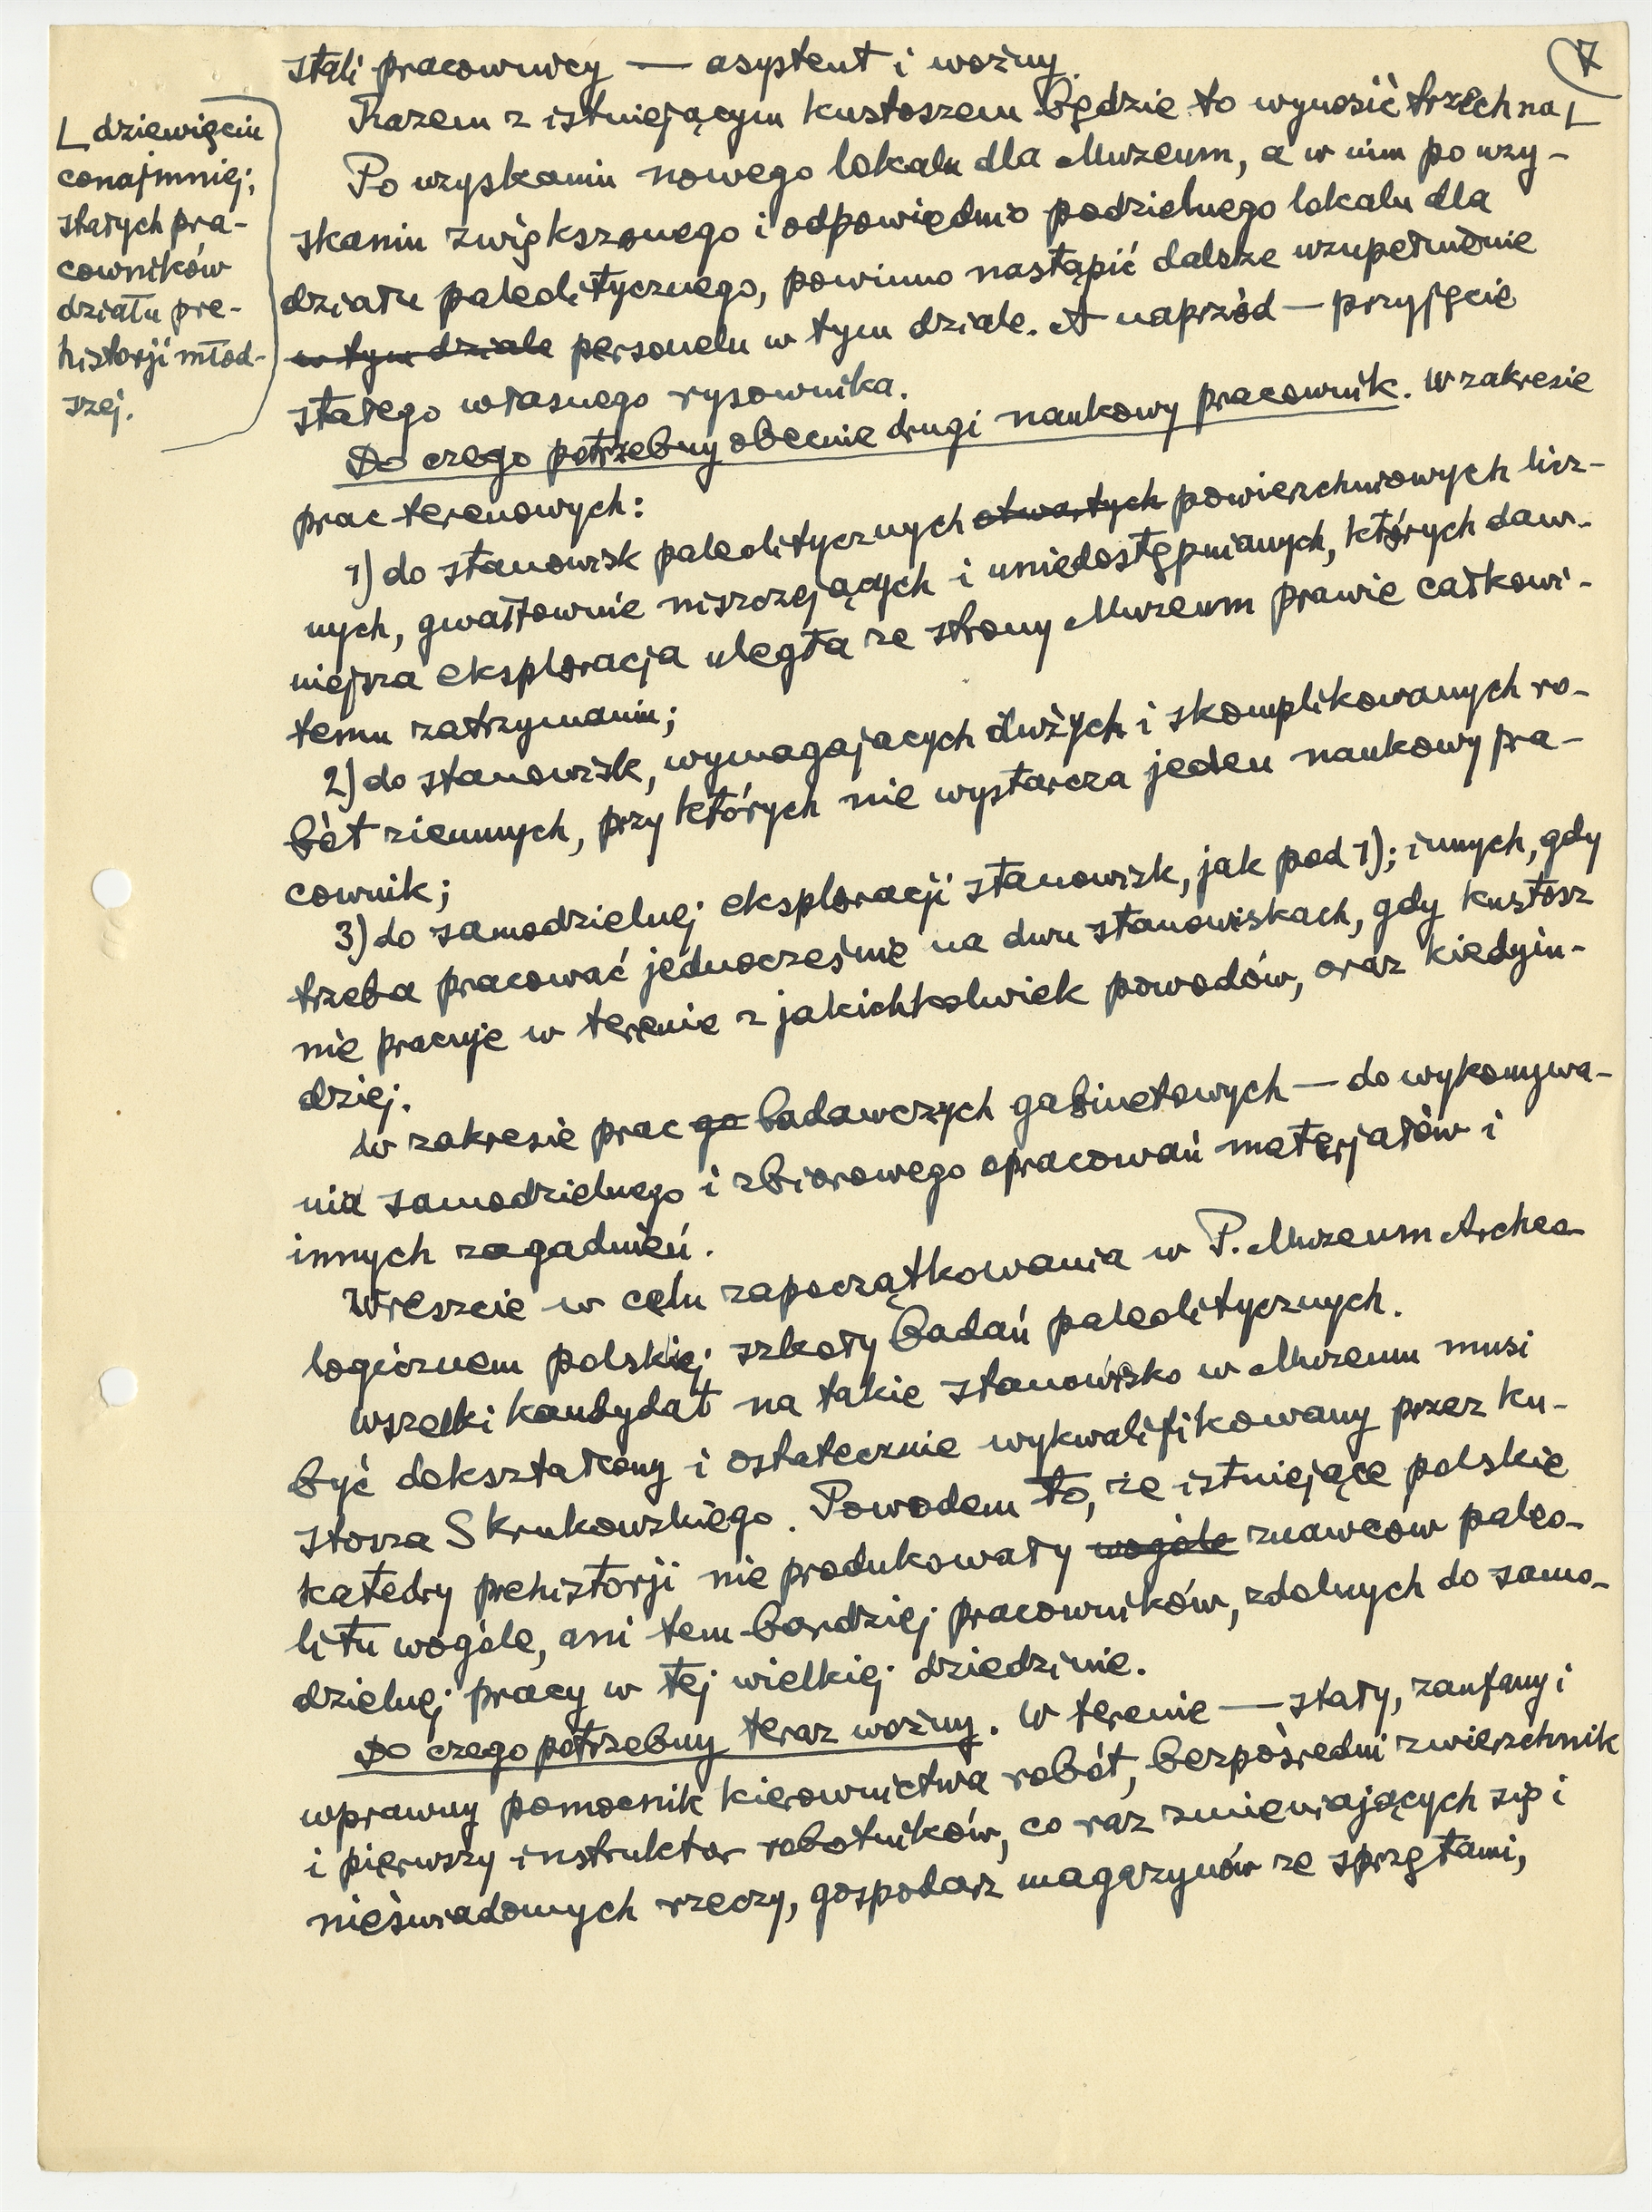 7
stali pracownicy — asystent i woźny.
Razem z istniejącym kustoszem będzie to wynosić trzech na L
L dziewięciu
conajmniej,
stałych pra-
cowników
działu pre-
historji młod-
szej.
Po uzyskaniu nowego lokalu dla Muzeum, a w nim po uzy-
skaniu zwiększonego i odpowiednio podzielnego lokalu dla
działu paleolitycznego, powinno nastąpić dalsze uzupełnienie
w tym dziale personelu w tym dziale. A naprzód — przyjęcie
stałego własnego rysownika.
Do czego potrzebny obecnie drugi naukowy pracownik. W zakresie
prac terenowych:
1) do stanowisk paleolitycznych otwartych powierzchniowych licz-
nych, gwałtownie niszczejących i uniedostępnianych, których daw-
niejsza eksploracja uległa ze strony Muzeum prawie całkowi-
temu zatrzymaniu;
2) do stanowisk, wymagających dużych i skomplikowanych ro-
bót ziemnych, przy których nie wystarcza jeden naukowy pra-
cownik;
3) do samodzielnej eksploracji stanowisk, jak pod 1); innych, gdy
trzeba pracować jednocześnie na dwu stanowiskach, gdy kustosz
nie pracuje w terenie z jakichkolwiek powodów, oraz kiedyin-
dziej.
W zakresie prac ga badawczych gabinetowych — do wykonywa-
nia samodzielnego i zbiorowego opracowań materjałów i
innych zagadnień.
Wreszcie w celu zapoczątkowania w P. Muzeum Archeo-
logicznem polskiej szkoły badań paleolitycznych.
Wszelki kandydat na takie stanowisko w Muzeum musi
być dokształcony i ostatecznie wykwalifikowany przez ku-
stosza S Krukowskiego. Powodem to, że istniejące polskie
katedry prehistorji nie produkowały wogóle znawców paleo-
litu wogóle, ani tem bardziej pracowników, zdolnych do samo-
dzielnej pracy w tej wielkiej dziedzinie.
Do czego potrzebny teraz woźny. W terenie — stały, zaufany i
wprawny pomocnik kierownictwa robót, bezpośredni zwierzchnik
i pierwszy instruktor robotników, co raz zmieniających się i
nieświadomych rzeczy, gospodarz magazynów ze sprzętami,